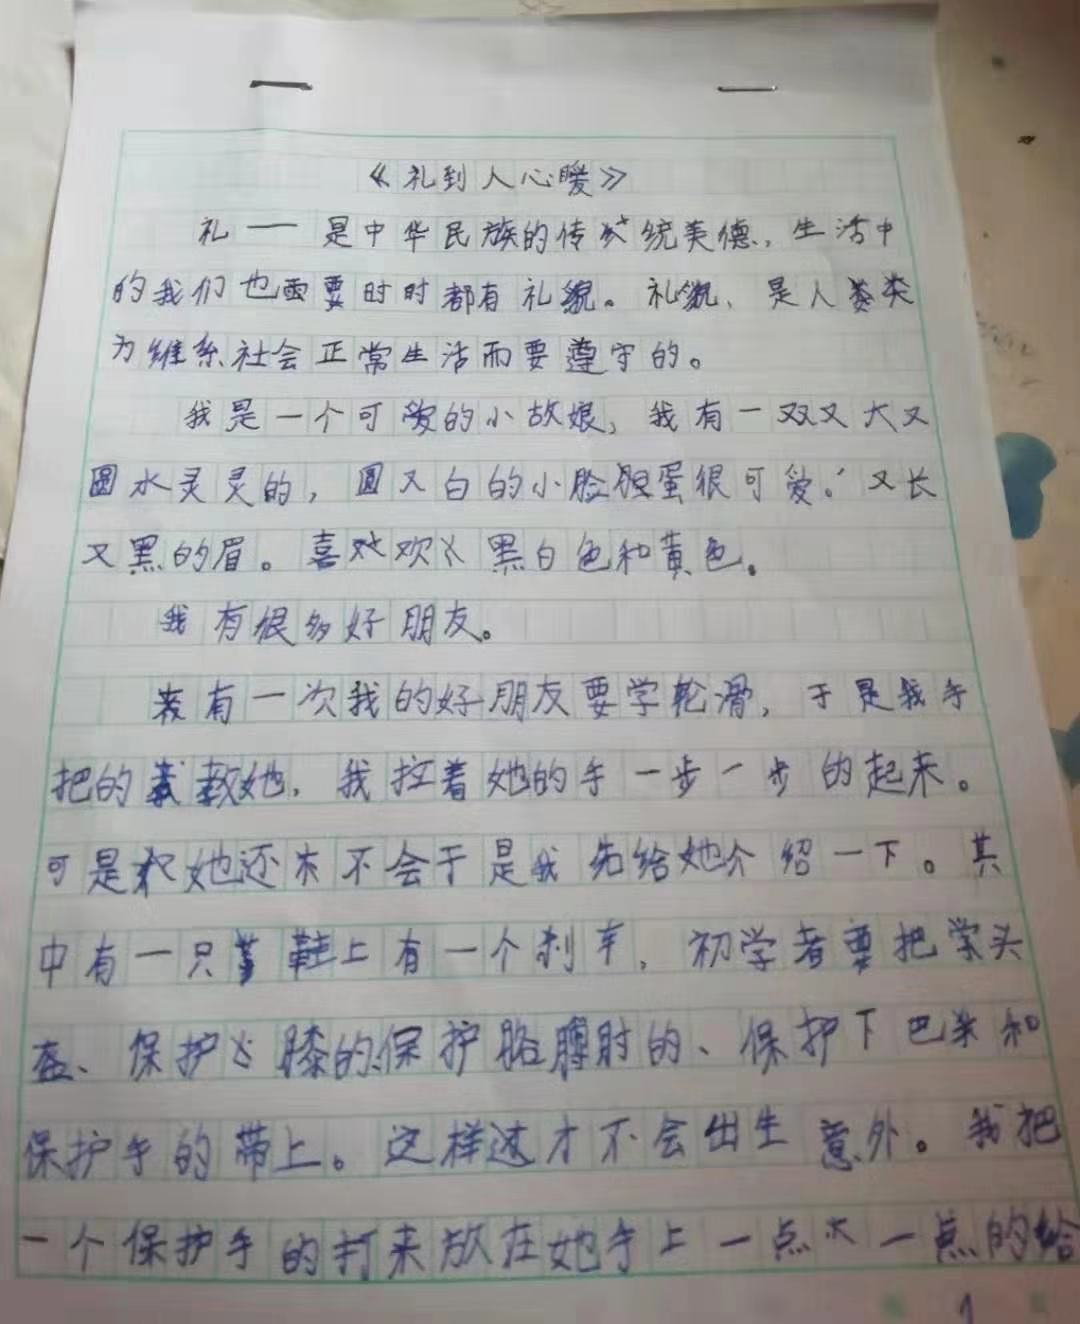 《礼到人心暖》
礼——是中华民族的传统美德,生活中
的我们也需要时时都有礼貌。礼貌、是人类
为维系社会正常生活而要遵守的。
我是一个可爱的小故娘,我有一双又大又
圆水灵灵的,圆又白的小脸蛋很可爱。又长
又黑的眉。喜欢黑白色和黄色。
我有很多好朋友。
有一次我的好朋友要学轮滑,于是我手
把的教她,我拉着她的手一步一步的起来。
可是她还不会于是我先给她介绍一下。其
中有一只鞋上有一个刹车,初学者要把头
盔、保护膝的、保护胳膊肘的、保护下巴和
保护手的带上。这样才不会出生意外。我把
一个保护手的打来放在她手上一点一点的给
1